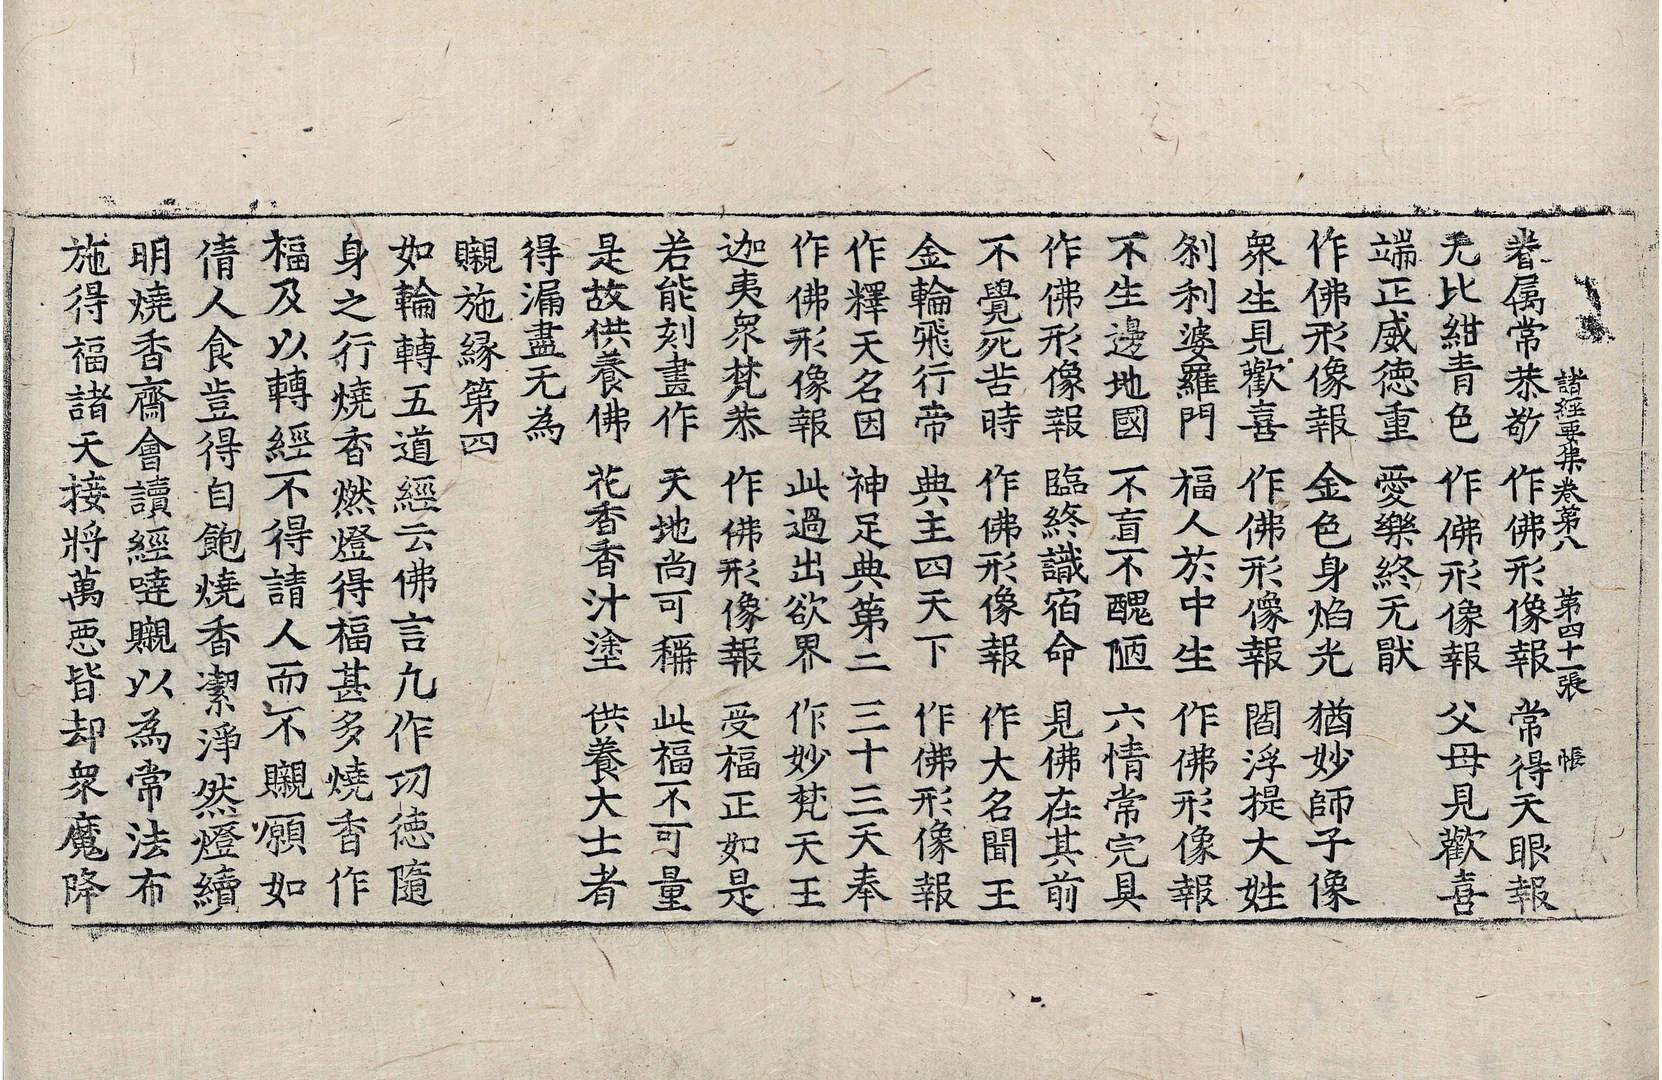 諸經要集卷第八 第四十一張 帳
眷属常恭敬 作佛形像報 常得天眼報
无比紺青色 作佛形像報 父母見歡喜
端正威徳重 愛樂終无猒
作佛形像報 金色身焰光 猶妙師子像
衆生見歡喜 作佛形像報 閻浮提大姓
刹利婆羅門 福人於中生 作佛形像報
不生邊地國 不盲不醜陋 六情常完具
作佛形像報 臨終識宿命 見佛在其前
不覺死苦時 作佛形像報 作大名聞王
金輪飛行帝 典主四天下 作佛形像報
作釋天名因 神足典第二 三十三天奉
作佛形像報 此過出欲界 作妙梵天王
迦夷衆梵恭 作佛形像報 受福正如是
若能刻畫作 天地尚可稱 此福不可量
是故供養佛 花香香汁塗 供養大士者
得漏盡无為
䞋施縁第四
如輪轉五道經云佛言九作㓛徳隨
身之行燒香燃燈得福甚多燒香作
福及以轉經不得請人而不䞋願如
倩人食豈得自飽燒香潔淨然燈續
明燒香齋會讀經噠䞋以為常法布
施得福諸天接將萬惡皆却衆魔降